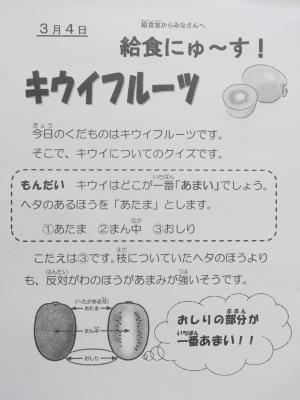 3月4日
給食室からみなさんへ
給食にゅ〜す!
キウイフルーツ
きょう
今日のくだものはキウイフルーツです。
そこで、キウイについてのクイズです。
いちばん
もんだい キウイはどこが一番「あまい」でしょう。
ヘタのあるほうを「あたま」とします。
なか
①あたま ②まん中 ③おしり
えだ
こたえは③です。枝についていたヘタのほうより
はんたい つよ
も、反対がわのほうがあまみが強いそうです。
(へたがある方)
あたま
まん中
おしり
ぶぶん
おしりの部分が
いちばん
一番あまい!!